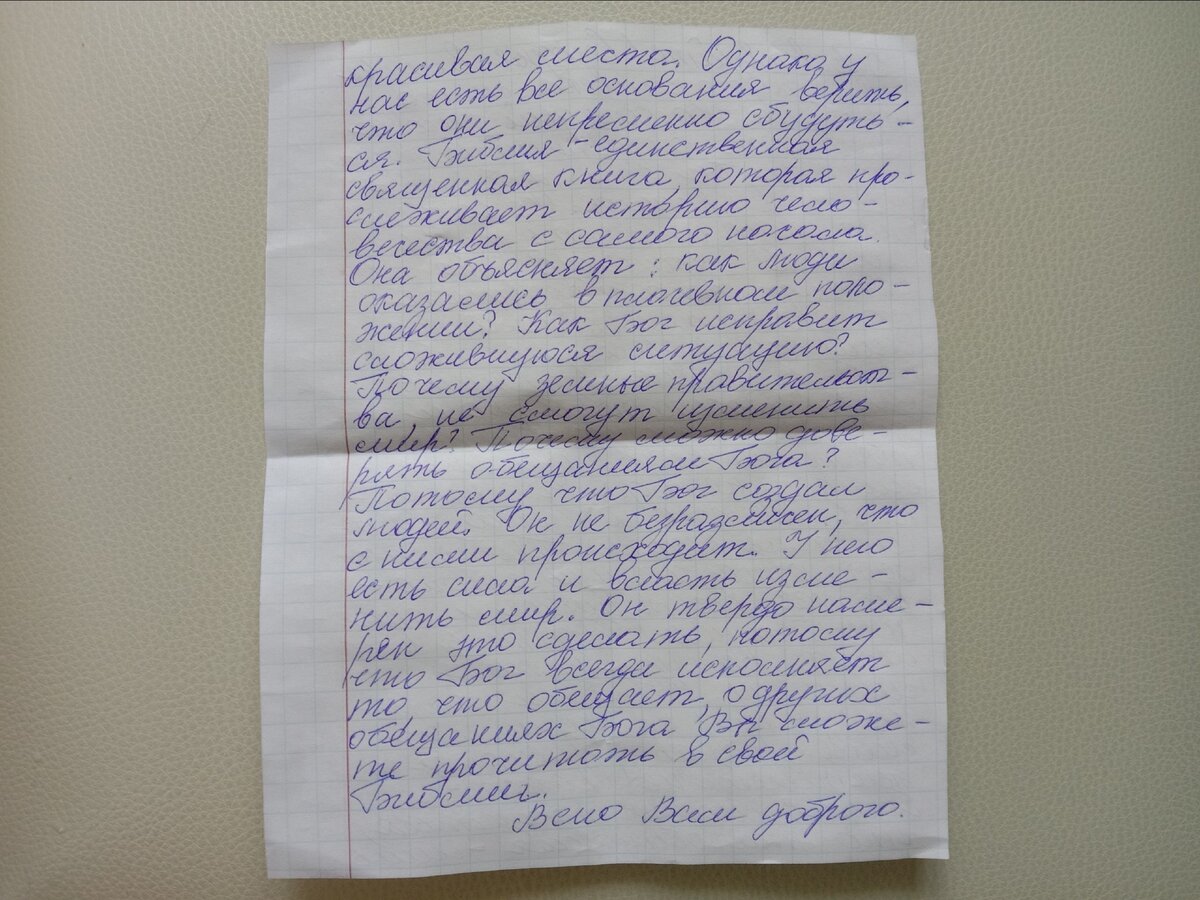 красивая места. Однако у
нас есть все основания верить,
что они непременно сбудуть-
ся. Библия - единственная
священная книга, которая про-
слеживает историю чело-
вечества с самого начала.
Она объясняет: как люди
оказались в плачевном поло-
жении? Как Бог исправит
сложившуюся ситуацию?
Почему земные правительст-
ва, не смогут изменить
мир? Почему можно дове-
рять обещаниям Бога?
Потому что Бог создал
людей. Он не безразличен, что
с ними происходит. У него
есть сила и власть изме-
нить мир. Он твердо наме-
рен это сделать, потому
что Бог всегда исполняет
то, что обещает, о других
обещаниях Бога Вы сможе-
те прочитать в свой
Библии.
Всего Вам доброго.